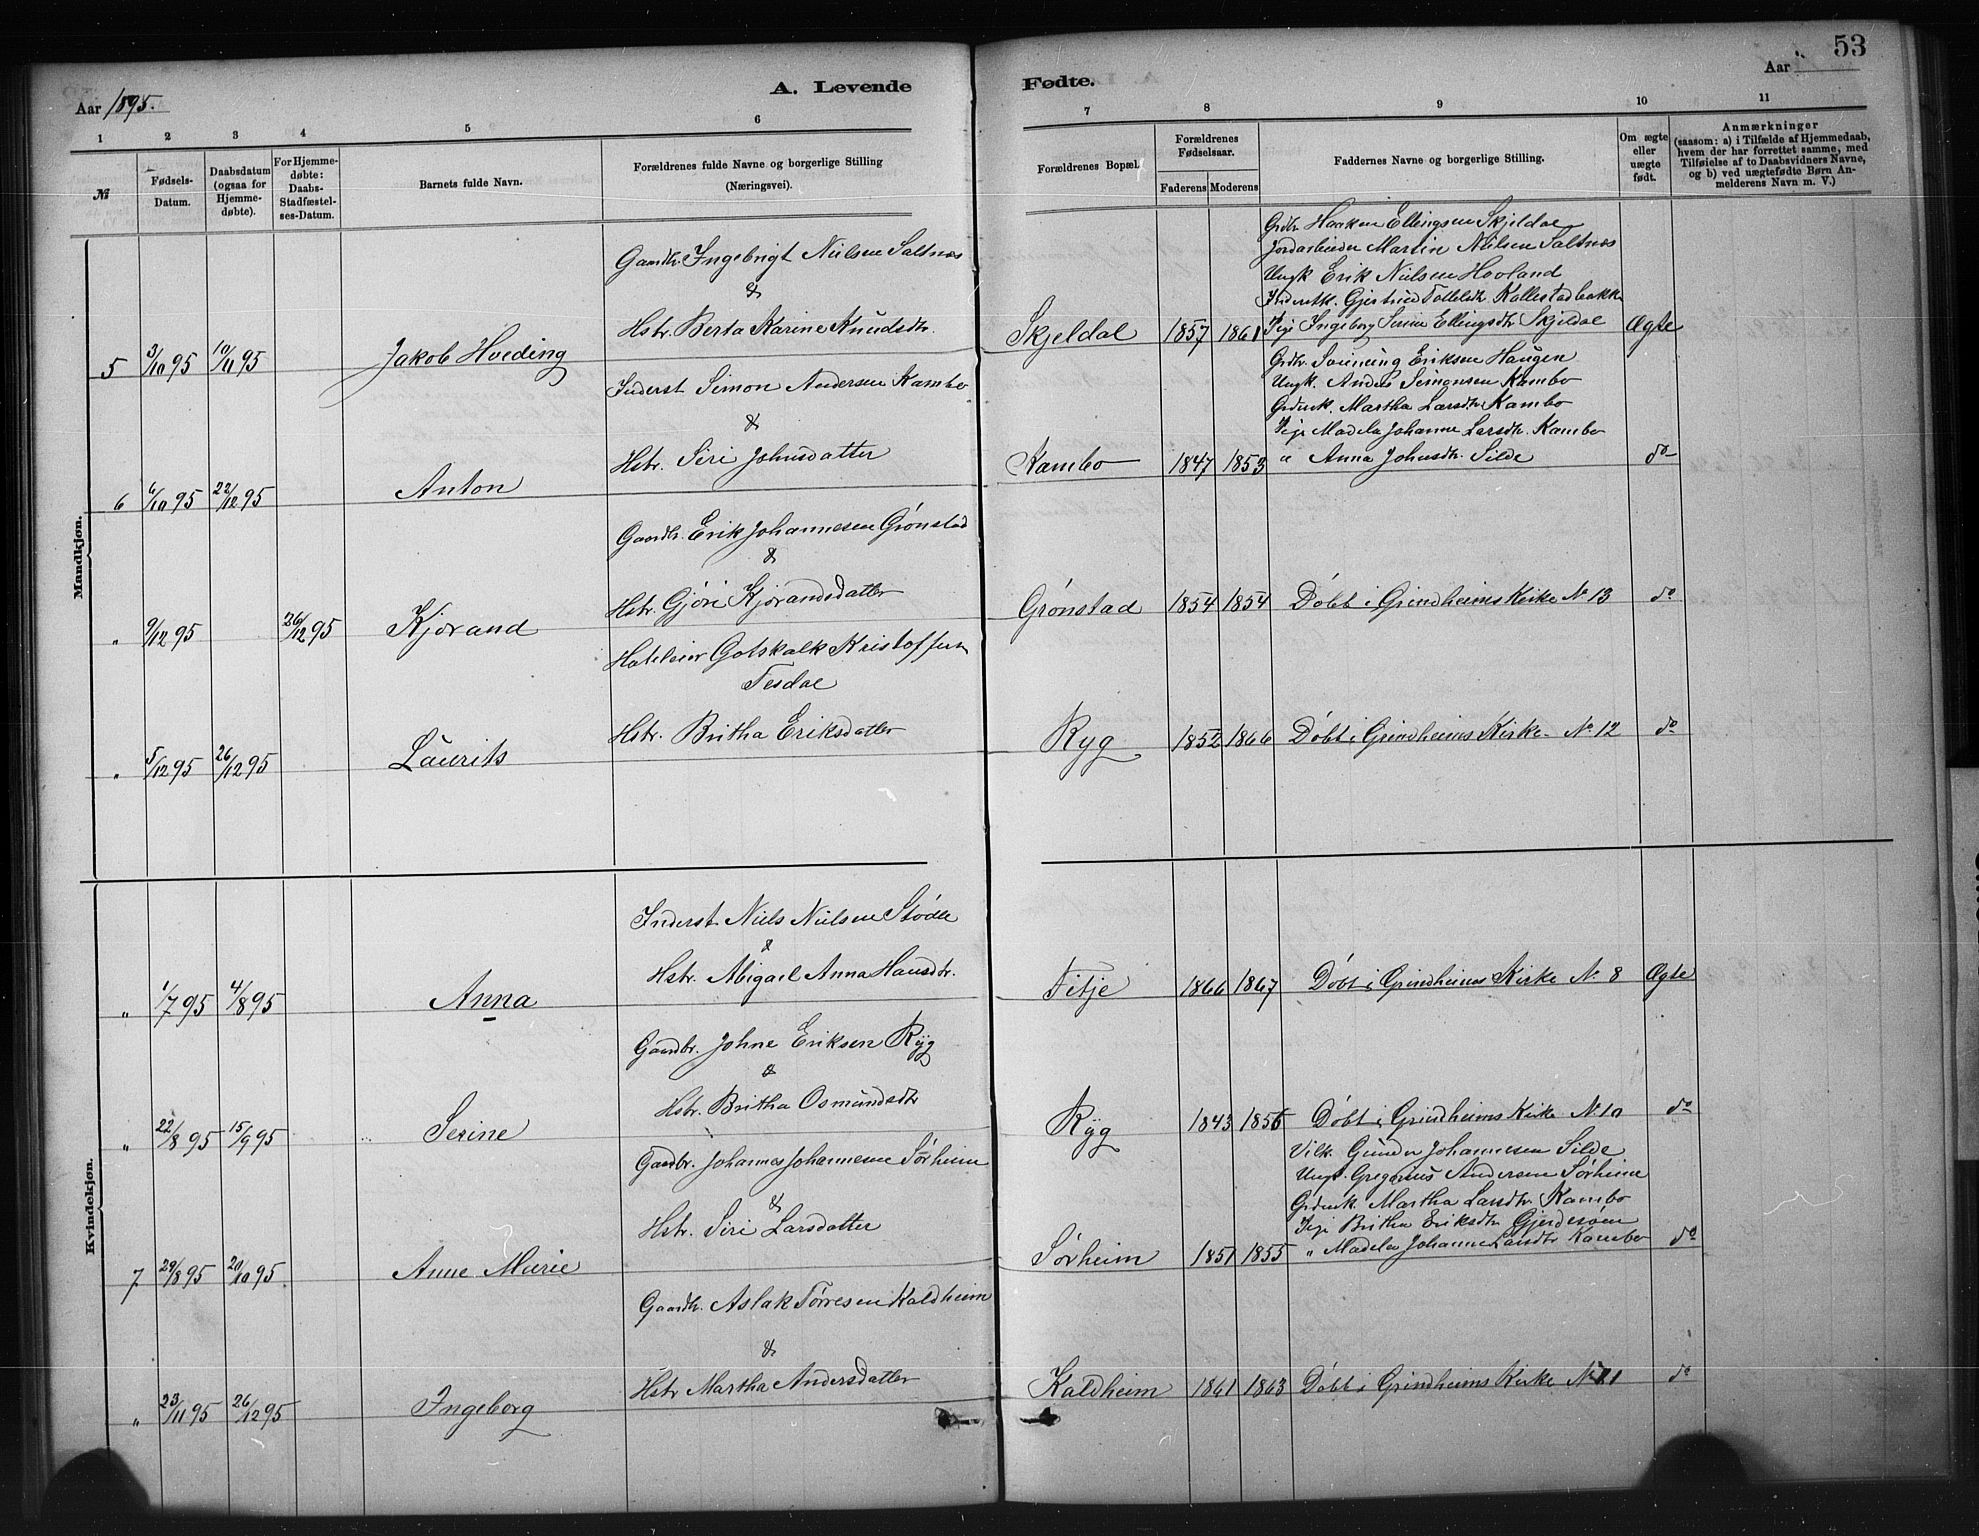 53
A. Levende
Fødte.
Aar 1895.
Aar
1 2 3 4 5 6 7 8 9 10 11
№
Fødsels-
Datum.
Daabsdatum
(ogsaa for
Hjemme-
døbte).
For Hjemme-
døbte:
Daabs-
Stadfæstel-
ses-Datum.
Barnets fulde Navn.
Forældrenes fulde Navne og borgerlige Stilling
(Næringsvei).
Forældrenes Bopæl.
Forældrenes
Fødselsaar.
Faderens Moderens
Faddernes Navne og borgerlige Stilling.
Om ægte
eller
uægte
født.
Anmærkninger
(saasom: a) i Tilfælde af Hjemmedaab,
hvem der har forrettet samme, med
Tilføielse af to Daabsvidners Navne,
og b) ved uægtefødte Børn An-
melderens Navn m. V.)
Mandkjøn.
5 3/10 95 10/11 95 Jakob Hoeding
Gaardbr. Ingebrigt Nielsen Saltnæs
&
Hstr. Berta Karine Knudsdtr.
Skjeldal 1857 1861
Grdbr. Haaken Ellingsen Skjeldal
Jordarbeider Martin Nielsen Saltnæs
Ungk Erik Nielsen Hooland
Inderstk. Gjertrud Tollelsdtr Kallestadbakk
Pige Ingeborg Serine Ellingsdtr Skjeldal
Ægte
6 6/10 95 22/12 95 Anton
Inderst Simon Andersen Kambo
&
Hstr. Siri Johnsdatter
Kambo 1847 1853
Grdbr. Eriksen Haugen
Ungk. Anders Simonsen Kambo
Grdmk. Martha Larsdtr Kambo
Pige Madela Johanne Larsdtr. Kambo
" Anna Johnsdtr. Silde
do
" 9/12 95 26/12 95 Kjorand
Gaardbr. Erik Johannesen Grønstad
&
Hstr. Gjøri Kjorandsdatter
Grønstad 1854 1854 Døbt i Grindheims Kirke No 13 do
" 5/12 95 26/12 95 Laurits
Hoteleier Gotskalk Kristoffersen
Tesdal
Hstr. Britha Eriksdatter
Ryg 1852 1866 Døbt i Grindheims Kirke No 12 do
Kvindekjøn.
" 1/7 95 4/8 95 Anna
Inderst Niels Nielsen Stødle
&
Hstr. Abigael Anna Hansdtr.
Fitje 1866 1867 Døbt i Grindheims Kirke No 8 Ægte
" 22/8 95 15/9 95 Serine
Gaardbr. Johne Eriksen Ryg
&
Hstr. Britha Osmundsdtr
Ryg 1843 1856 Døbt i Grindheims Kirke No 10 do
7 29/8 95 20/10 95 Anne Marie
Gaardbr. Johannes Johannesen Sørheim
&
Hstr. Siri Larsdatter
Sørheim 1851 1855
Gunder Johannesen Silde
Ungk. Gregerius Andersen Sørheim
Grdmk. Martha Larsdtr. Kambo
Pige Britha Eriksdtr Gjerdesøen
" Madela Johanne Larsdtr Kambo
do
" 23/11 95 26/12 95 Ingeborg
Gaardbr. Aslak Tørresen Kaldheim
&
Hstr Martha Andersdatter
Kaldheim 1861 1863 Døbt i Grindheims Kirke No 11 do